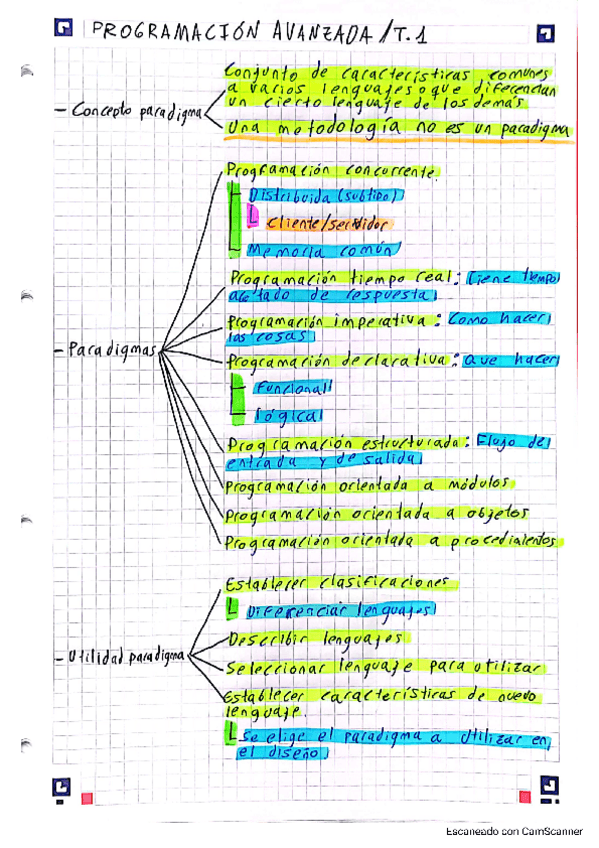 PROGRAMACIÓN AVANZADA/T.1
Conjunto de características comunes
a varios lenguajes o que diferencian
un cierto lenguaje de los demás
- Concepto paradigma
Una metodología no es un paradigma
Programación concurrente
Distribuida (subtipo)
Cliente/servidor
Memoria común
Programación tiempo real: Tiene tiempo
acotado de respuesta
Programación imperativa: Como hacer
las cosas
- Paradigmas
Programación declarativa: Que hacer
Funcional
lógica
Programación estructurada: Flujo de
entrada y de salida
Programación orientada a módulos
Programación orientada a objetos
Programación orientada a procedimientos
Establecer clasificaciones
Diferenciar lenguajes
Describir lenguajes
- Utilidad paradigma
Seleccionar lenguaje para utilizar
Establecer características de nuevo
lenguaje.
Se elige el paradigma a utilizar en
el diseño
Escaneado con CamScanner